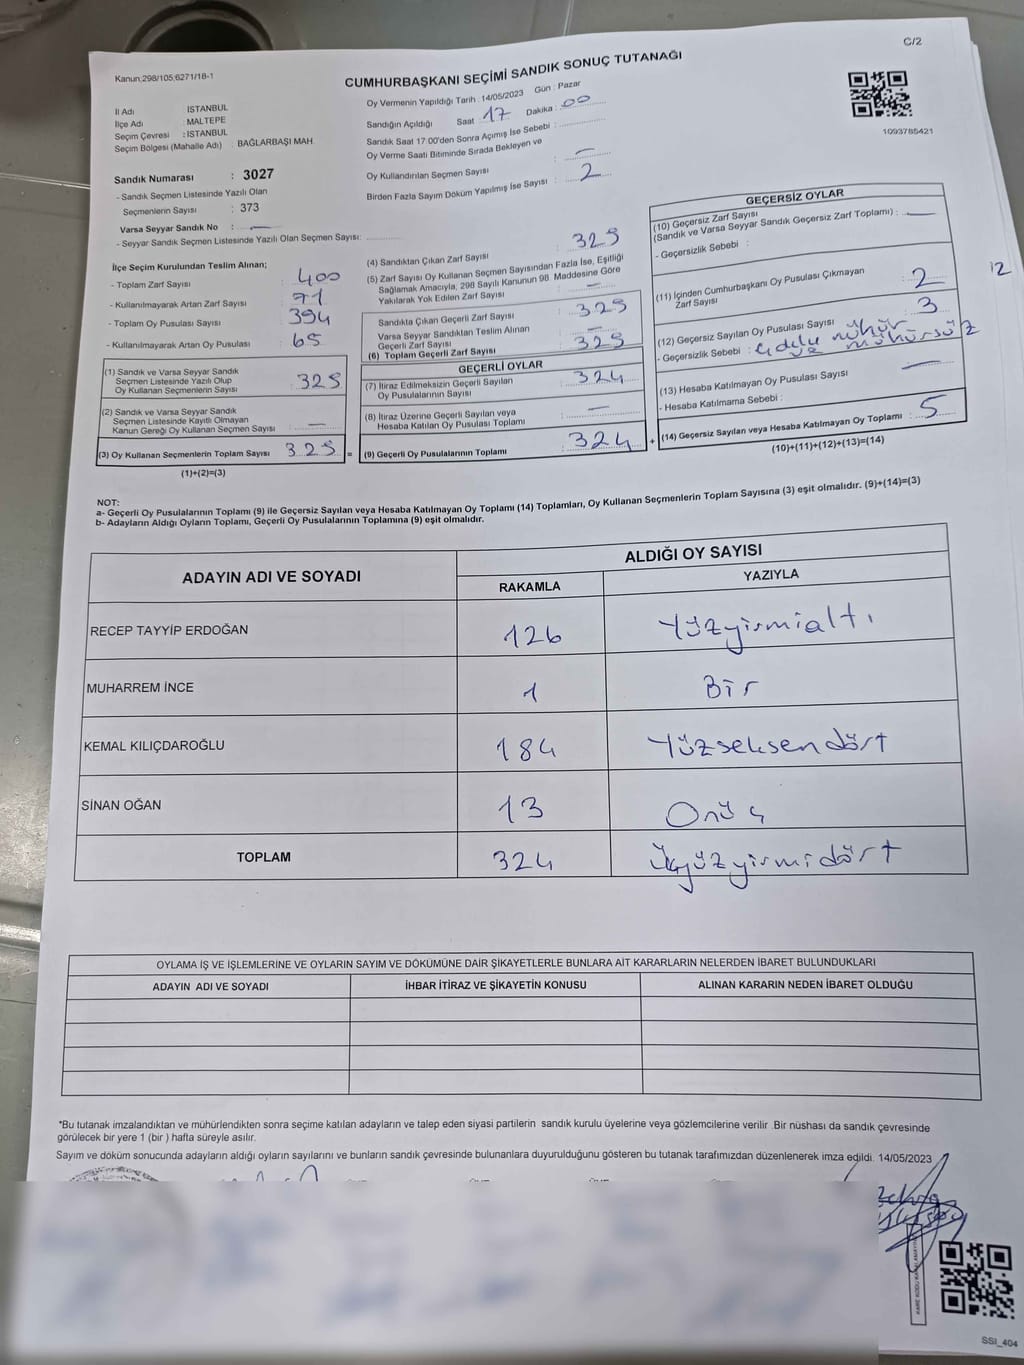 C/2
Kanun:298/105;6271/18-1
CUMHURBAŞKANI SEÇİMİ SANDIK SONUÇ TUTANAĞI
1093785421
İl Adı : İSTANBUL
İlçe Adı : MALTEPE
Seçim Çevresi : İSTANBUL
Seçim Bölgesi (Mahalle Adı) : BAĞLARBAŞI MAH
Sandık Numarası : 3027
- Sandık Seçmen Listesinde Yazılı Olan
Seçmenlerin Sayısı : 373
Varsa Seyyar Sandık No : —
- Seyyar Sandık Seçmen Listesinde Yazılı Olan Seçmen Sayısı:
Oy Vermenin Yapıldığı Tarih : 14/05/2023 Gün : Pazar
Sandığın Açıldığı Saat : 17 Dakika : 00
Sandık Saat 17:00'den Sonra Açımış İse Sebebi :
Oy Verme Saati Bitiminde Sırada Bekleyen ve
Oy Kullandırılan Seçmen Sayısı : —
Birden Fazla Sayım Döküm Yapılmış İse Sayısı : 2
İlçe Seçim Kurulundan Teslim Alınan;
- Toplam Zarf Sayısı : 400
- Kullanılmayarak Artan Zarf Sayısı : 71
- Toplam Oy Pusulası Sayısı : 394
- Kullanılmayarak Artan Oy Pusulası : 65
(1) Sandık ve Varsa Seyyar Sandık
Seçmen Listesinde Yazılı Olup
Oy Kullanan Seçmenlerin Sayısı : 329
(2) Sandık ve Varsa Seyyar Sandık
Seçmen Listesinde Kayıtlı Olmayan
Kanun Gereği Oy Kullanan Seçmen Sayısı : —
(3) Oy Kullanan Seçmenlerin Toplam Sayısı : 329 =
(1)+(2)=(3)
(4) Sandıktan Çıkan Zarf Sayısı : 329
(5) Zarf Sayısı Oy Kullanan Seçmen Sayısından Fazla İse, Eşitliği
Sağlamak Amacıyla, 298 Sayılı Kanunun 98. Maddesine Göre
Yakılarak Yok Edilen Zarf Sayısı : —
Sandıkta Çıkan Geçerli Zarf Sayısı : 329
Varsa Seyyar Sandıktan Teslim Alınan
Geçerli Zarf Sayısı : —
(6) Toplam Geçerli Zarf Sayısı : 329
GEÇERLİ OYLAR
(7) İtiraz Edilmeksizin Geçerli Sayılan
Oy Pusulalarının Sayısı : 324
(8) İtiraz Üzerine Geçerli Sayılan veya
Hesaba Katılan Oy Pusulası Toplamı : —
(9) Geçerli Oy Pusulalarının Toplamı : 324 +
GEÇERSİZ OYLAR
(10) Geçersiz Zarf Sayısı
(Sandık ve Varsa Seyyar Sandık Geçersiz Zarf Toplamı) : —
- Geçersizlik Sebebi :
(11) İçinden Cumhurbaşkanı Oy Pusulası Çıkmayan
Zarf Sayısı : 2
12
(12) Geçersiz Sayılan Oy Pusulası Sayısı : 3
- Geçersizlik Sebebi : mühür
ve mühürsüz
(13) Hesaba Katılmayan Oy Pusulası Sayısı : —
- Hesaba Katılmama Sebebi :
(14) Geçersiz Sayılan veya Hesaba Katılmayan Oy Toplamı : 5
(10)+(11)+(12)+(13)=(14)
NOT:
a- Geçerli Oy Pusulalarının Toplamı (9) ile Geçersiz Sayılan veya Hesaba Katılmayan Oy Toplamı (14) Toplamları, Oy Kullanan Seçmenlerin Toplam Sayısına (3) eşit olmalıdır. (9)+(14)=(3)
b- Adayların Aldığı Oyların Toplamı, Geçerli Oy Pusulalarının Toplamına (9) eşit olmalıdır.
ADAYIN ADI VE SOYADI
ALDIĞI OY SAYISI
RAKAMLA YAZIYLA
RECEP TAYYİP ERDOĞAN 126 Yüzyirmialtı
MUHARREM İNCE 1 Bir
KEMAL KILIÇDAROĞLU 184 Yüzseksendört
SİNAN OĞAN 13 Onüç
TOPLAM 324 Üçyüzyirmidört
OYLAMA İŞ VE İŞLEMLERİNE VE OYLARIN SAYIM VE DÖKÜMÜNE DAİR ŞİKAYETLERLE BUNLARA AİT KARARLARIN NELERDEN İBARET BULUNDUKLARI
ADAYIN ADI VE SOYADI İHBAR İTİRAZ VE ŞİKAYETİN KONUSU ALINAN KARARIN NEDEN İBARET OLDUĞU
*Bu tutanak imzalandıktan ve mühürlendikten sonra seçime katılan adayların ve talep eden siyasi partilerin sandık kurulu üyelerine veya gözlemcilerine verilir .Bir nüshası da sandık çevresinde
görülecek bir yere 1 (bir ) hafta süreyle asılır.
Sayım ve döküm sonucunda adayların aldığı oyların sayılarını ve bunların sandık çevresinde bulunanlara duyurulduğunu gösteren bu tutanak tarafımızdan düzenlenerek imza edildi. 14/05/2023
SSI_404